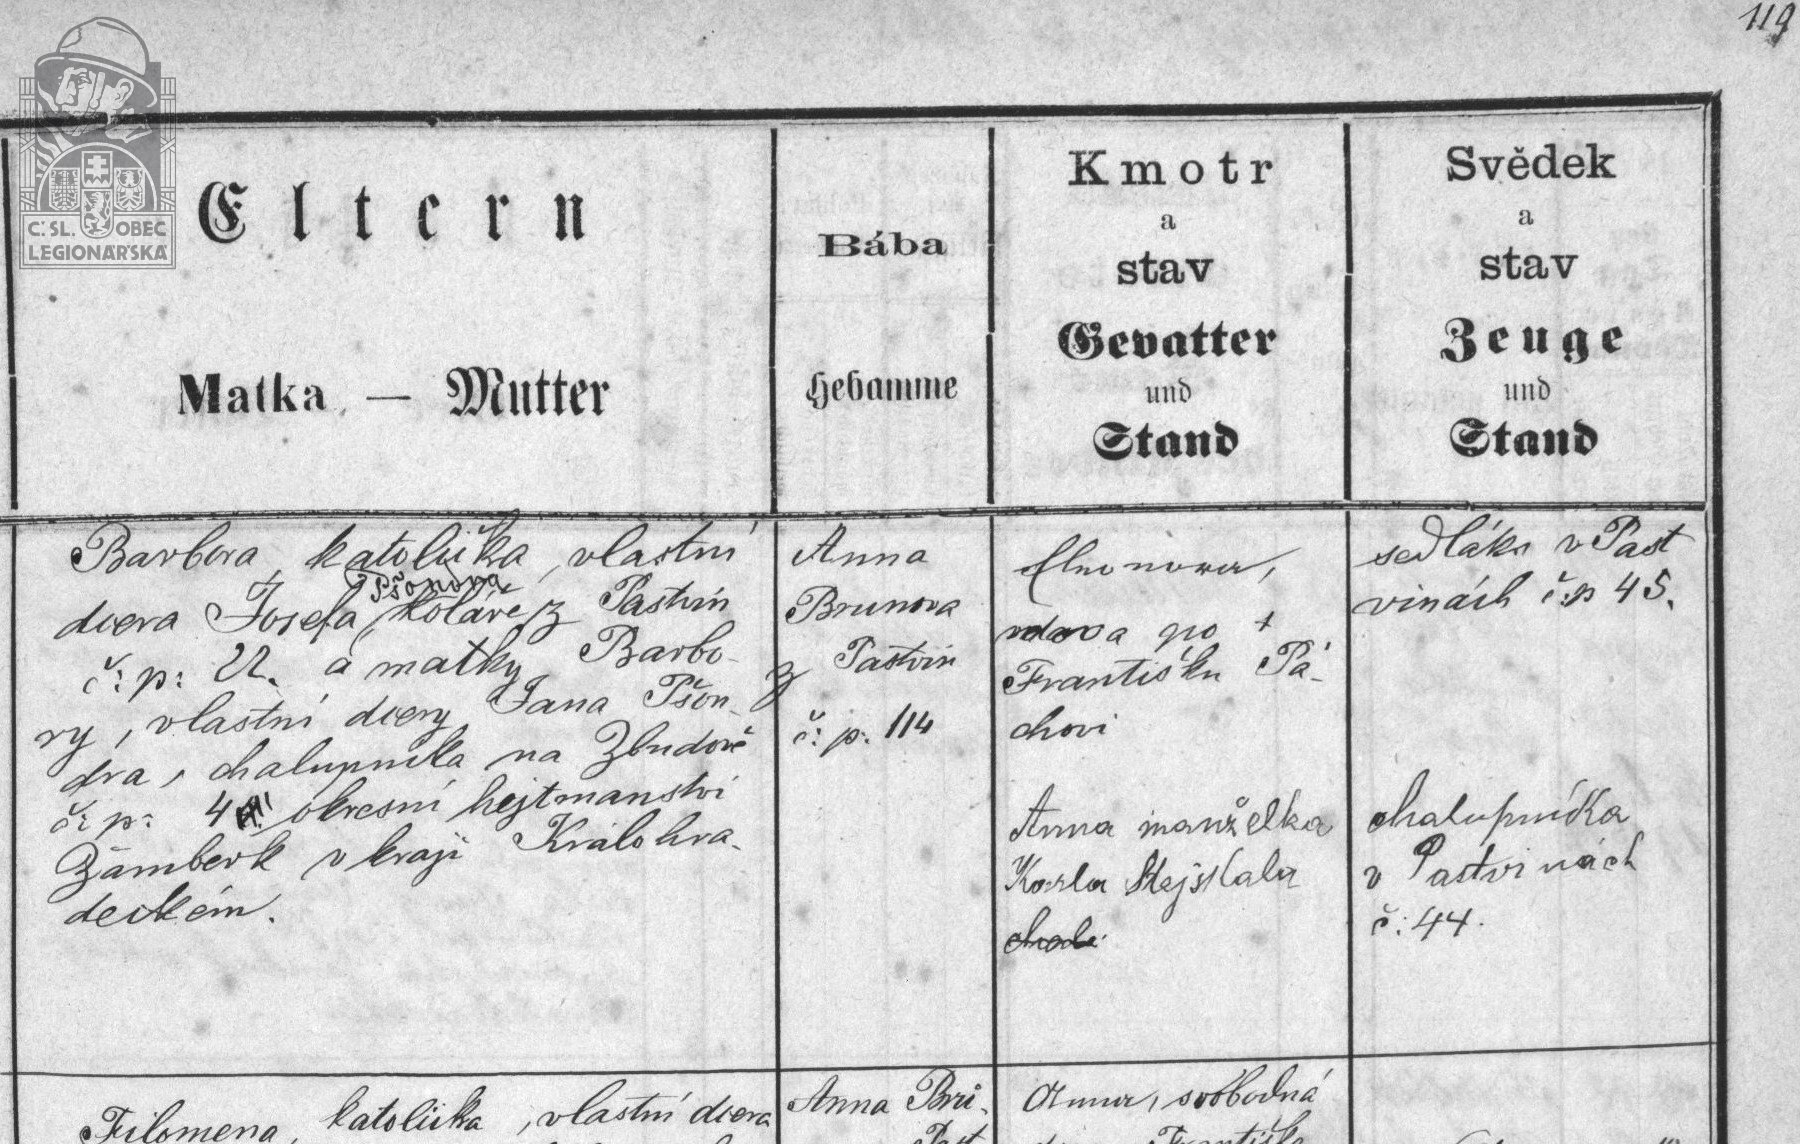 119
Č.SL. OBEC
LEGIONÁŘSKÁ
Eltern
Matka — Mutter
Bába
Hebamme
Kmotr
a
stav
Gevatter
und
Stand
Svědek
a
stav
Zeuge
und
Stand
Barbora, katolička, vlastní
dcera Josefa Pšonova, koláře z Pastvin
č: p: 22. a matky Barbo-
ry, vlastní dcery Jana Pšon-
dra, chalupníka na Zbudově
č: p: 4 okresní hejtmanství
Žamberk v kraji Králohra-
deckém.
Anna
Brunova
z Pastvin
č: p: 114
Eleonora,
vdova po †
Františku Pá-
chovi
sedláka v Past
vinách č:p 45.
Anna manželka
Karla Stejskala
chalupníka
v Pastvinách
č: 44.
Filomena, katolička, vlastní dcera
Anna Bru-
Past
Anna, svobodná
Františka